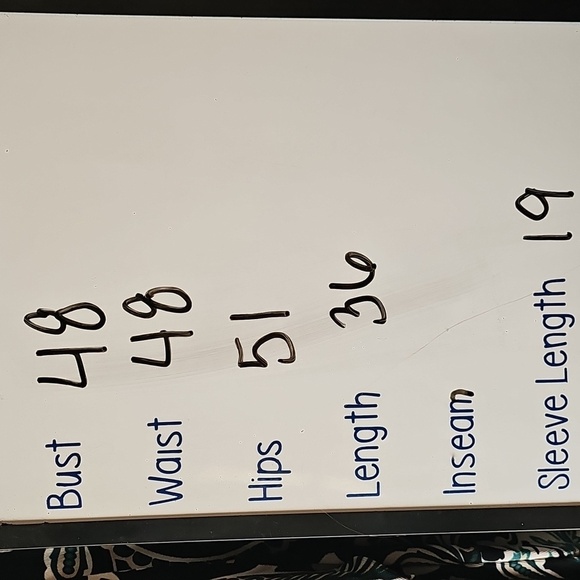 Bust 48
Waist 48
Hips 51
Length 36
Inseam
Sleeve Length 19